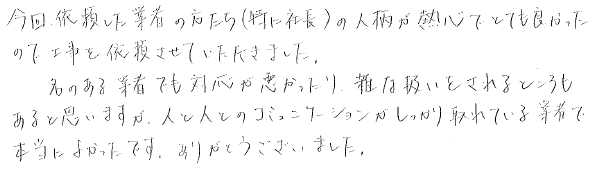 今回、依頼した業者の方たち(特に社長)の人柄が熱心でとても良かった
ので工事を依頼させていただきました。
名のある業者でも対応が悪かったり、雑な扱いをされるところも
あると思いますが、人と人とのコミュニケーションがしっかり取れている業者で
本当によかったです。ありがとうございました。